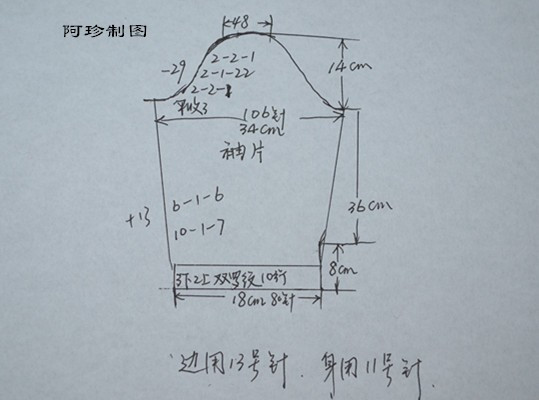 阿珍制图
48
-29
2-2-1
2-1-22
2-2-1
平收3
14cm
106针
34cm
袖片
36cm
+13
6-1-6
10-1-7
8cm
3下2上双罗纹10行
18cm 80针
边用13号针. 身用11号针.